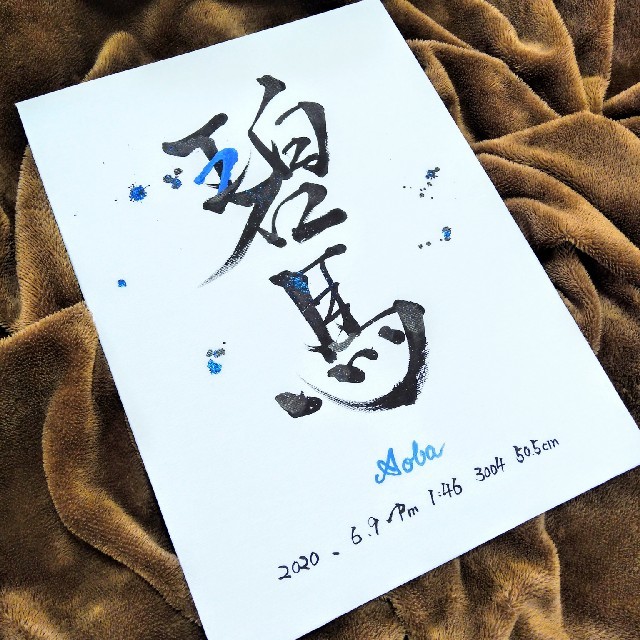 碧馬
Aoba
2020.6.9 Pm 1:46 3004 50.5cm